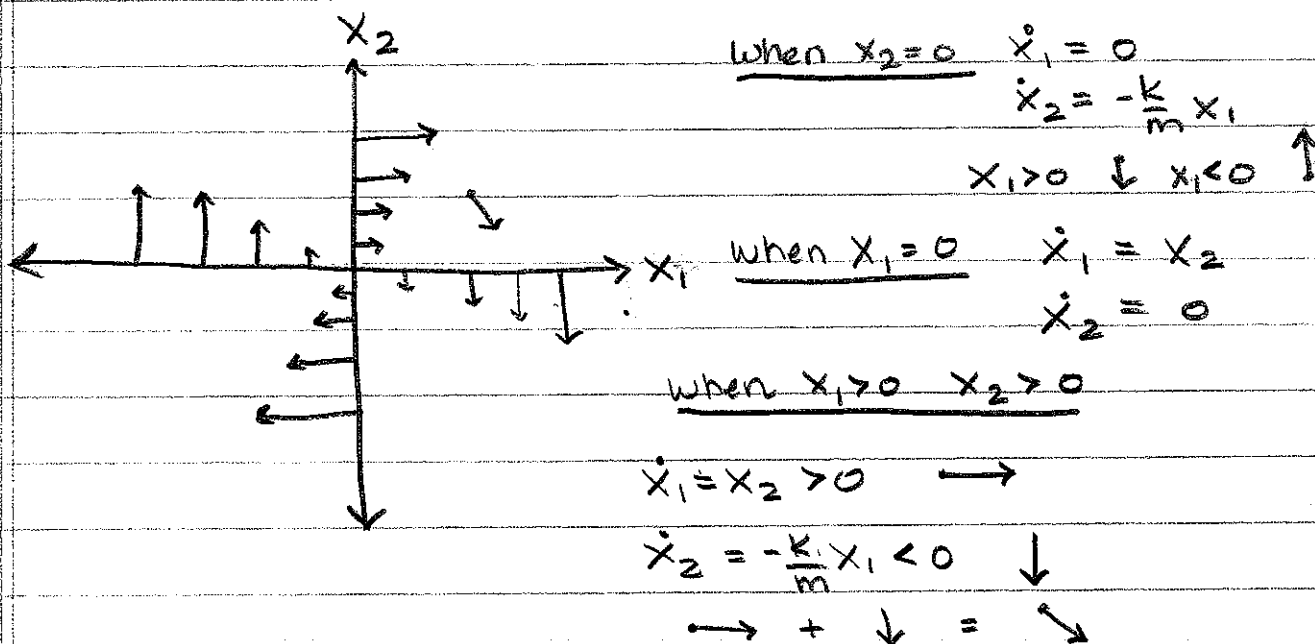 X₂
when x₂=0 ẋ₁ = 0
ẋ₂ = -k/m x₁
x₁>0 ↓ x₁<0 ↑
X₁ when X₁=0 ẋ₁ = x₂
ẋ₂ = 0
when x₁>0 x₂>0
ẋ₁=x₂>0 →
ẋ₂ = -k/m x₁ < 0 ↓
→ + ↓ = ↘